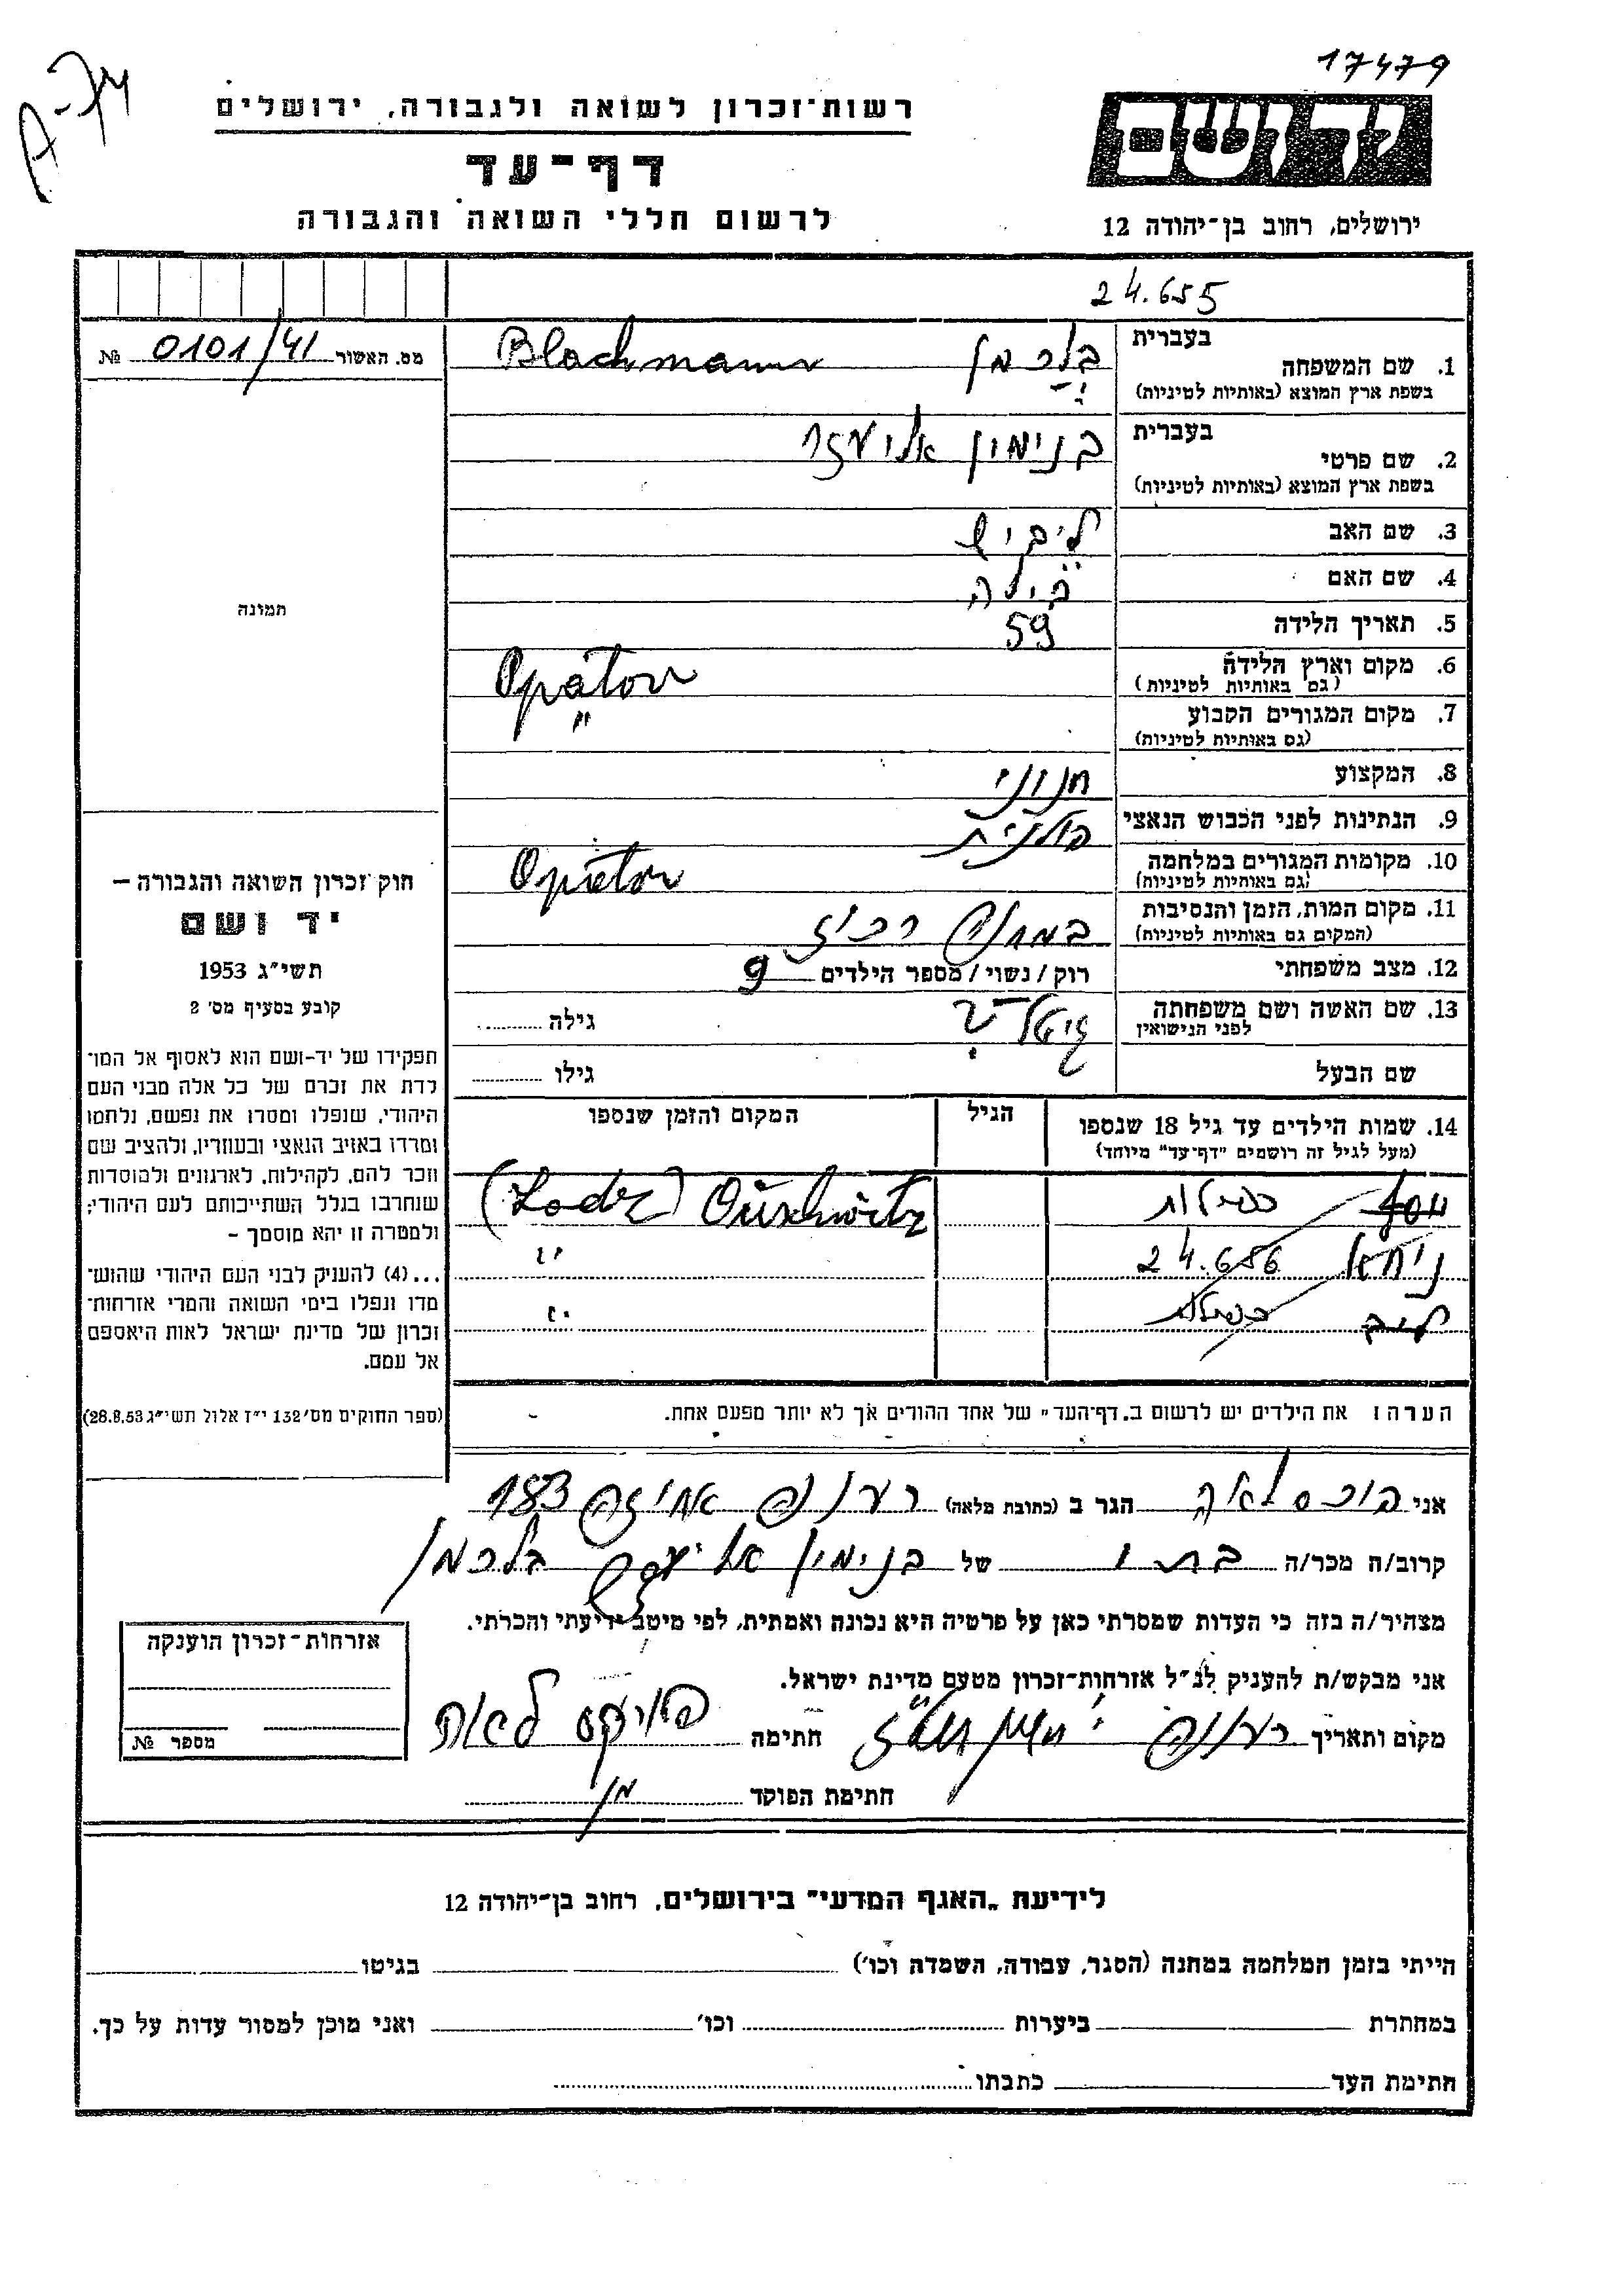 17479
A-74
רשות־זכרון לשואה ולגבורה, ירושלים
דף־עד
לרשום חללי השואה והגבורה
יד ושם
ירושלים, רחוב בן־יהודה 12
24.655
מס. האשור 0101/41 №
בעברית
1. שם המשפחה בלכמן Blachmann
בשפת ארץ המוצא (באותיות לטיניות)
בעברית
2. שם פרטי בנימין אליעזר
בשפת ארץ המוצא (באותיות לטיניות)
3. שם האב לייביש
4. שם האם ביילה
5. תאריך הלידה 59
6. מקום וארץ הלידה Opatow
(גם באותיות לטיניות)
7. מקום המגורים הקבוע "
(גם באותיות לטיניות)
8. המקצוע חנוני
9. הנתינות לפני הכבוש הנאצי פולנית
10. מקומות המגורים במלחמה Opatow
(גם באותיות לטיניות)
11. מקום המות, הזמן והנסיבות במחנה ריכוז
(המקום גם באותיות לטיניות)
12. מצב משפחתי רוק / נשוי / מספר הילדים 9
13. שם האשה ושם משפחתה גיטל גילה
לפני הנישואין
שם הבעל גילו
14. שמות הילדים עד גיל 18 שנספו הגיל המקום והזמן שנספו
(מעל לגיל זה רושמים "דף־עד" מיוחד)
יוסף כפילות Ouschwitz (Lodz)
24.656 "
לייב כפילות "
הערה: את הילדים יש לרשום ב„דף־העד" של אחד ההורים אך לא יותר מפעם אחת.
תמונה
חוק זכרון השואה והגבורה —
יד ושם
תשי"ג 1953
קובע בסעיף מס' 2
תפקידו של יד־ושם הוא לאסוף אל המו־
לדת את זכרם של כל אלה מבני העם
היהודי, שנפלו ומסרו את נפשם, נלחמו
ומרדו באויב הנאצי ובעוזריו, ולהציב שם
וזכר להם, לקהילות, לארגונים ולמוסדות
שנחרבו בגלל השתייכותם לעם היהודי;
ולמטרה זו יהא מוסמך —
...(4) להעניק לבני העם היהודי שהוש־
מדו ונפלו בימי השואה והמרי אזרחות־
זכרון של מדינת ישראל לאות היאספם
אל עמם.
(ספר החוקים מס' 132 י"ז אלול תשי"ג 28.8.53)
אני פוקס לאה הגר ב (כתובת מלאה) רעננה אחוזה 183
קרוב/ה מכר/ה בתו של בנימין אליעזר בלכמן
מצהיר/ה בזה כי העדות שמסרתי כאן על פרטיה היא נכונה ואמתית, לפי מיטב ידיעתי והכרתי.
אני מבקש/ת להעניק לנ"ל אזרחות־זכרון מטעם מדינת ישראל.
מקום ותאריך רעננה חתימה פוקס לאה
חתימת הפוקד
אזרחות־זכרון הוענקה
מספר №
לידיעת „האגף המדעי" בירושלים, רחוב בן־יהודה 12
הייתי בזמן המלחמה במחנה (הסגר, עבודה, השמדה וכו') בגיטו
במחתרת ביערות וכו' ואני מוכן למסור עדות על כך.
חתימת העד כתבתו